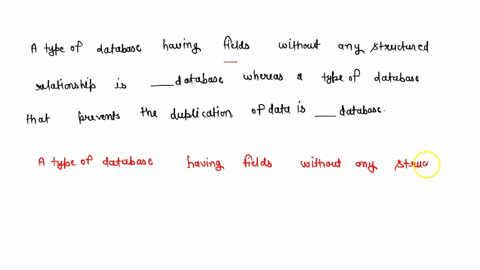 A type of database having fields without any structured
relationship is ___ database whereas a type of database
that prevents the duplication of data is ___ database.
A type of database having fields without any struc